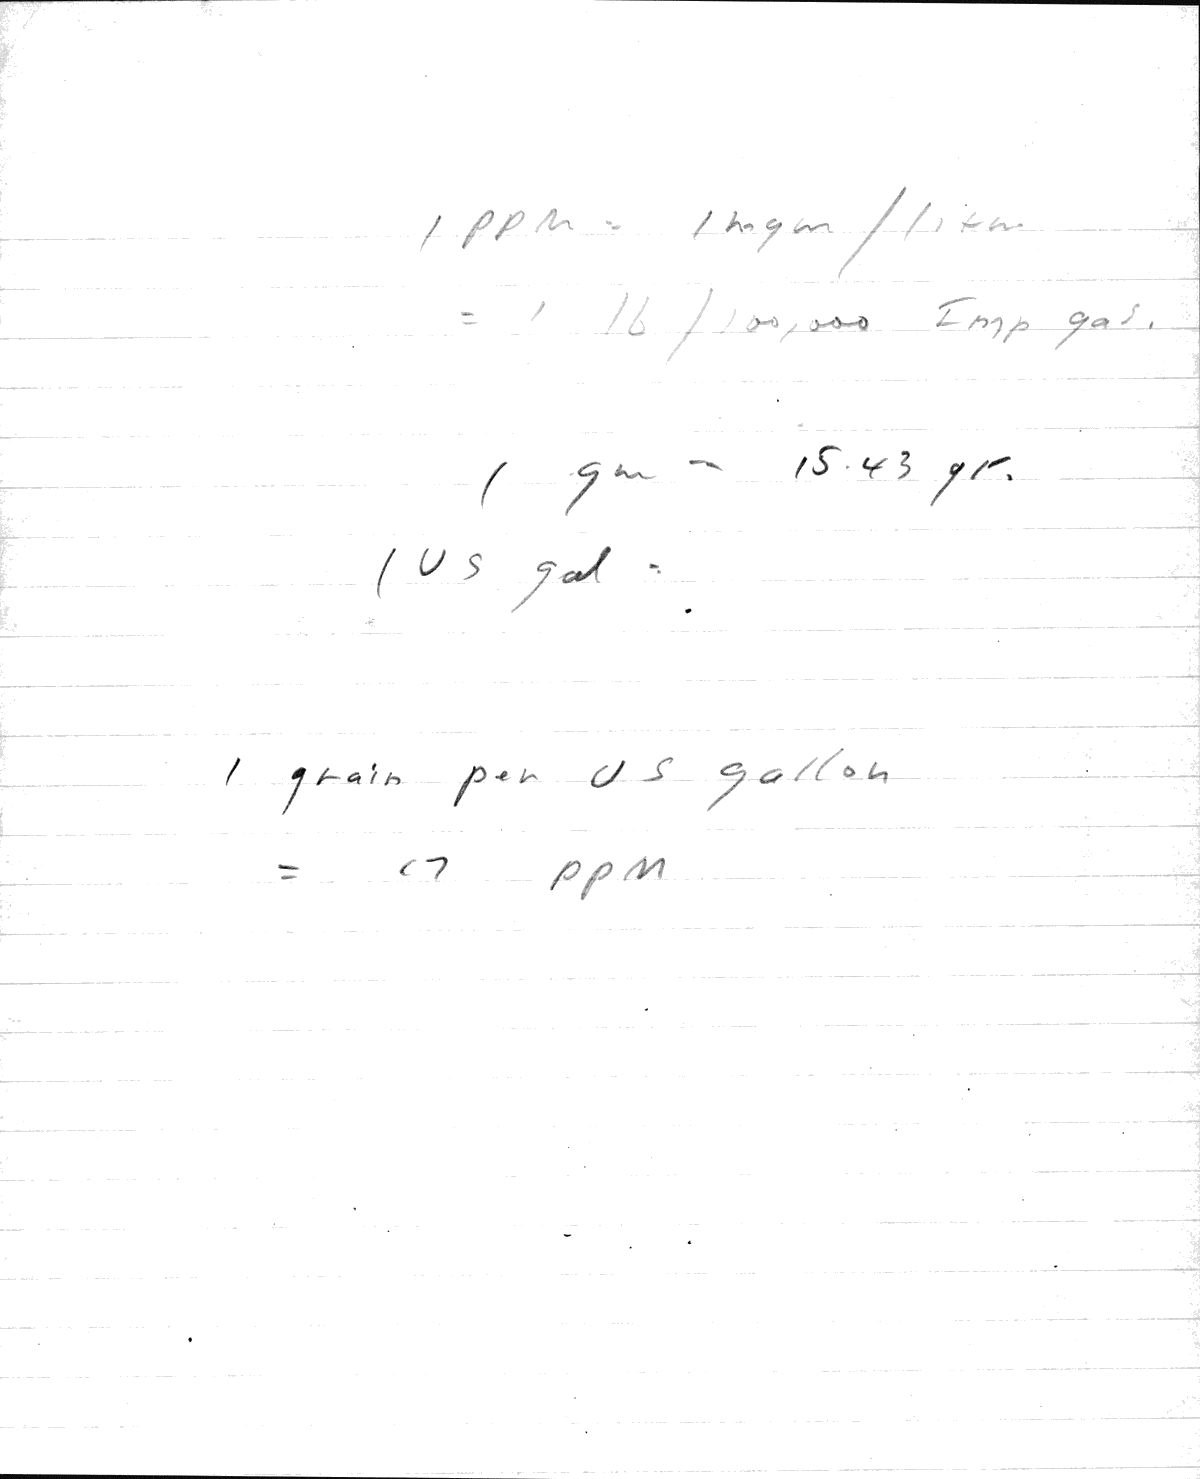 1 PPM = 1 mgm / liter
= 1 lb / 100,000 Imp gas.
1 gm = 15.43 gr.
1 US gal =
1 grain per US gallon
= 17 PPM